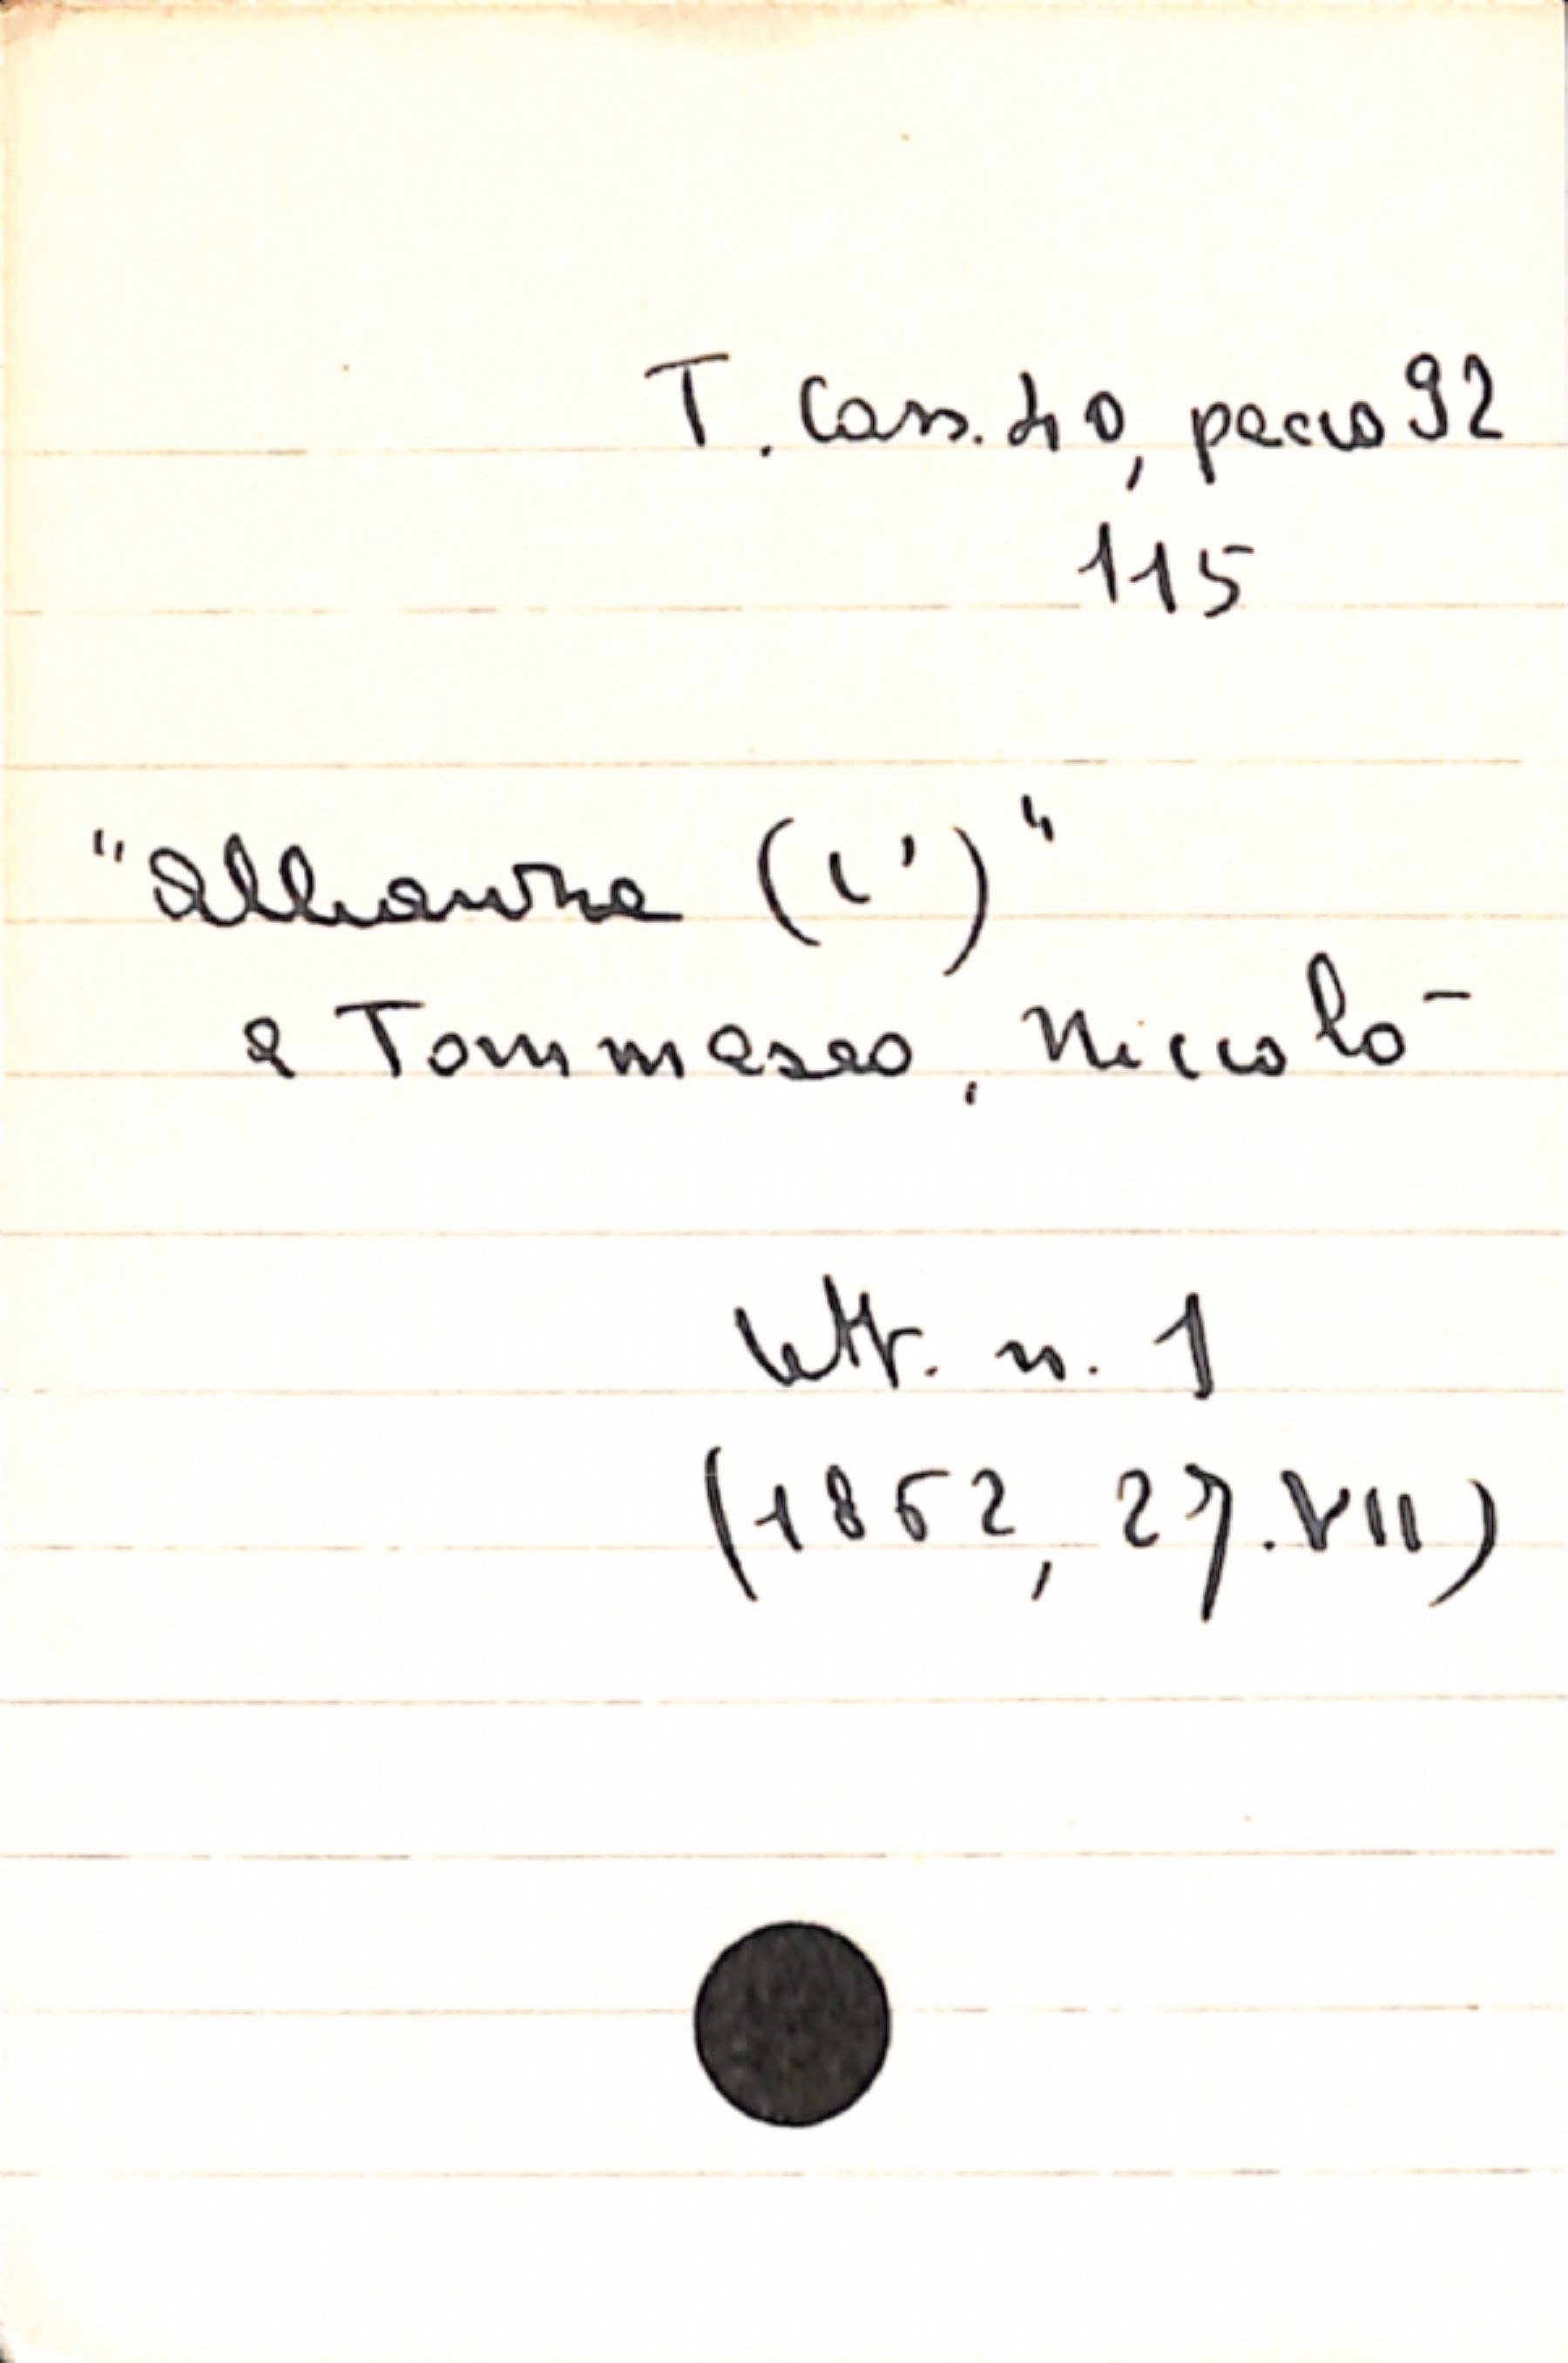 T. Cass. 40, pacco 92
115
"Alleanza (L')"
a Tommaseo, Niccolò
lett. n. 1
(1862, 27.VII)